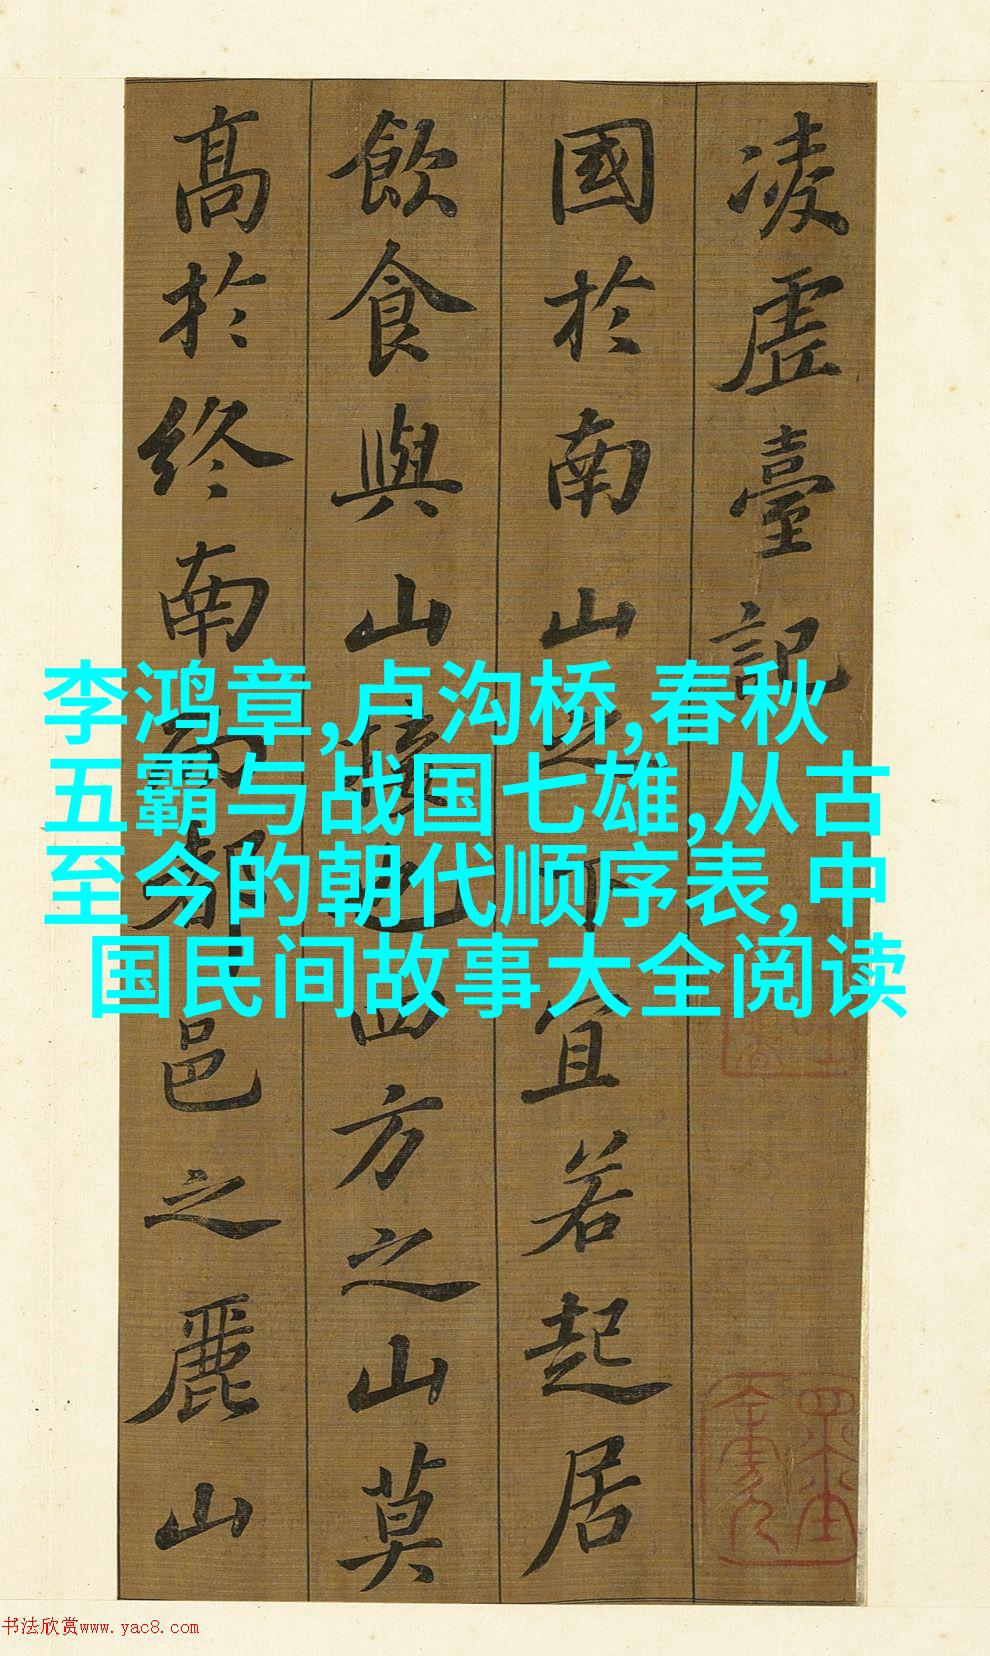 凌虛臺記
國於南山之下宜若起居
飲食與山接也四方之山莫
髙於終南而都邑之麗山
李鸿章,卢沟桥,春秋
五霸与战国七雄,从古
至今的朝代顺序表,中
国民间故事大全阅读
书法欣赏www.yac8.com